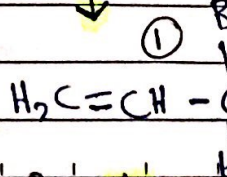 ①
H₂C=CH-